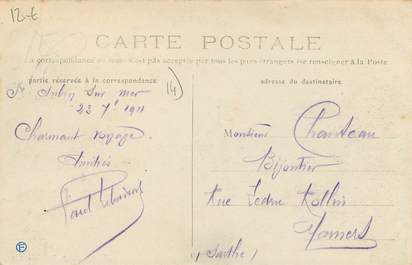 12-€
CARTE POSTALE
La correspondance au recto n'est pas acceptée par tous les pays étrangers se renseigner à la Poste
partie réservée à la correspondance
adresse du destinataire
St Aubin sur mer
23 7e 1911
(14)
Charmant voyage
Amitiés
Paul
Monsieur Chanteau
Bijoutier
Rue Ledru Rollin
Mamers
(Sarthe)
F